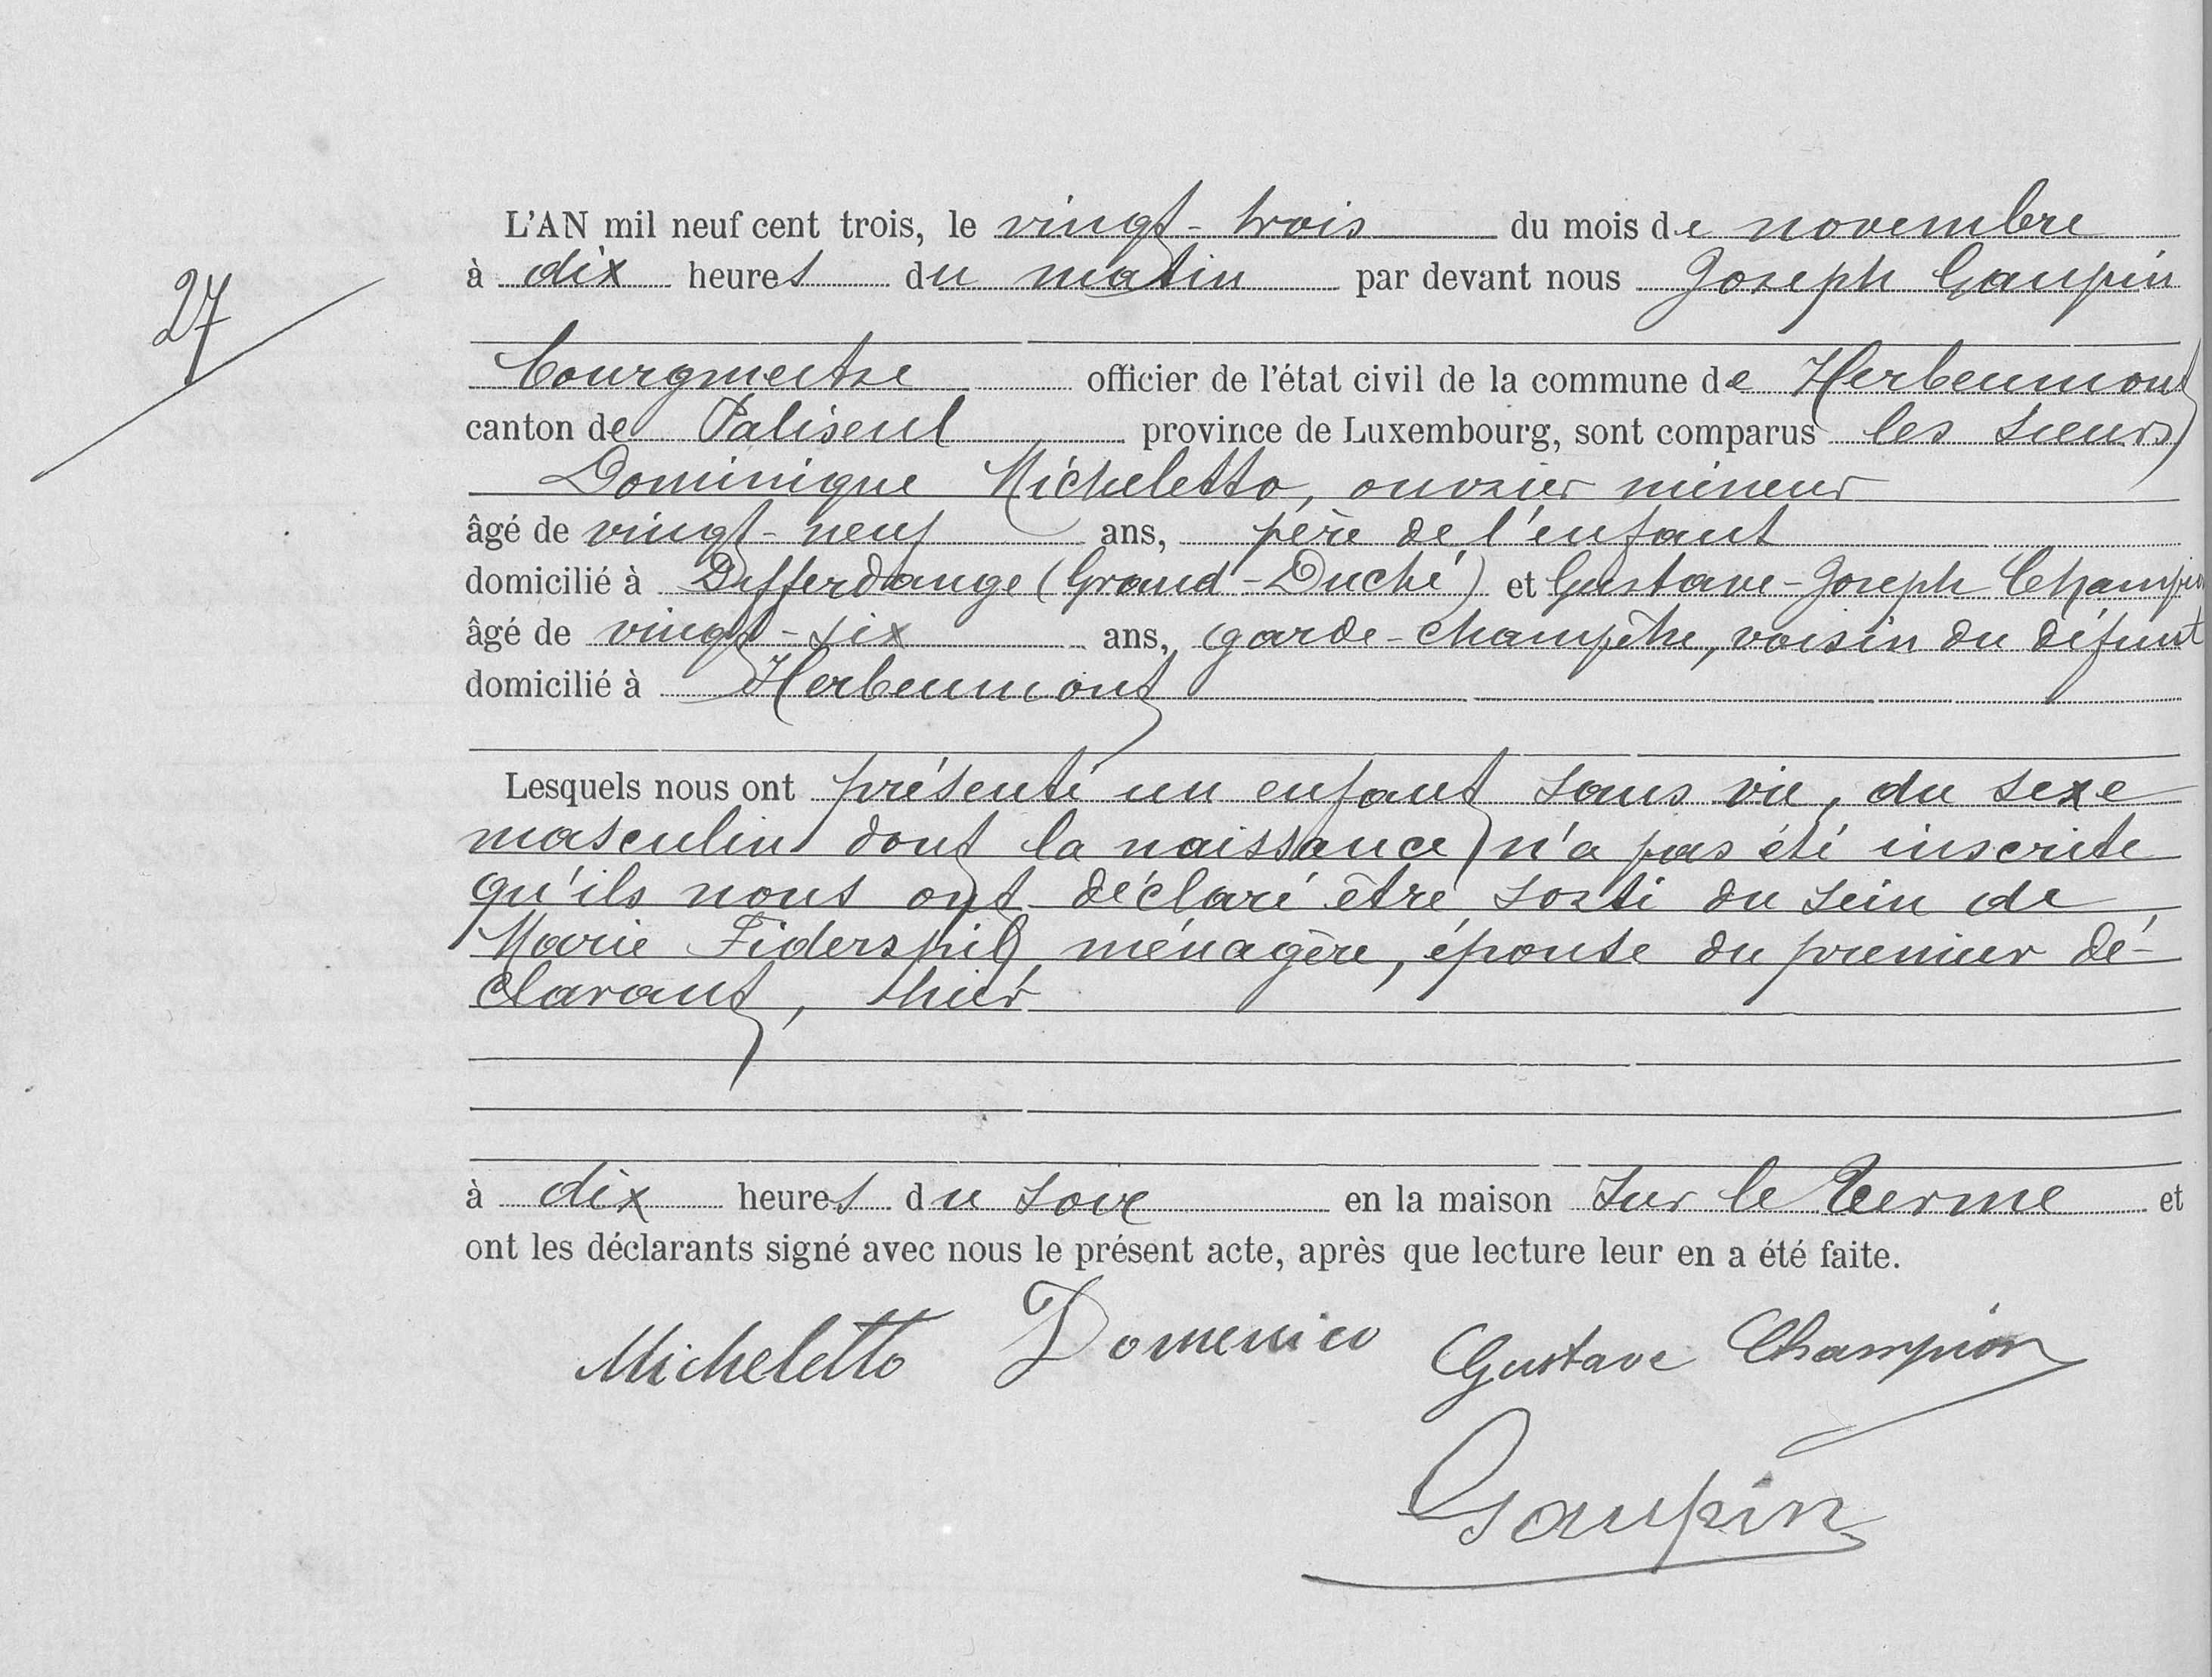 27
L'AN mil neuf cent trois, le vingt-trois du mois de novembre
à dix heures du matin par devant nous Joseph Gaupin
bourgmestre officier de l'état civil de la commune de Herbeumont
canton de Paliseul province de Luxembourg, sont comparus les sieurs
Dominique Micheletto, ouvrier mineur
âgé de vingt-neuf ans, père de l'enfant
domicilié à Differdange (Grand-Duché) et Gustave-Joseph Champion
âgé de vingt-six ans, garde-champêtre, voisin du défunt
domicilié à Herbeumont
Lesquels nous ont présenté un enfant sans vie, du sexe
masculin dont la naissance n'a pas été inscrite
qu'ils nous ont déclaré être sorti du sein de
Marie Fiderspil, ménagère, épouse du premier dé-
clarant, hier
à dix heures du soir en la maison sur le Terme et
ont les déclarants signé avec nous le présent acte, après que lecture leur en a été faite.
Micheletto Domenico Gustave Champion
Gaupin